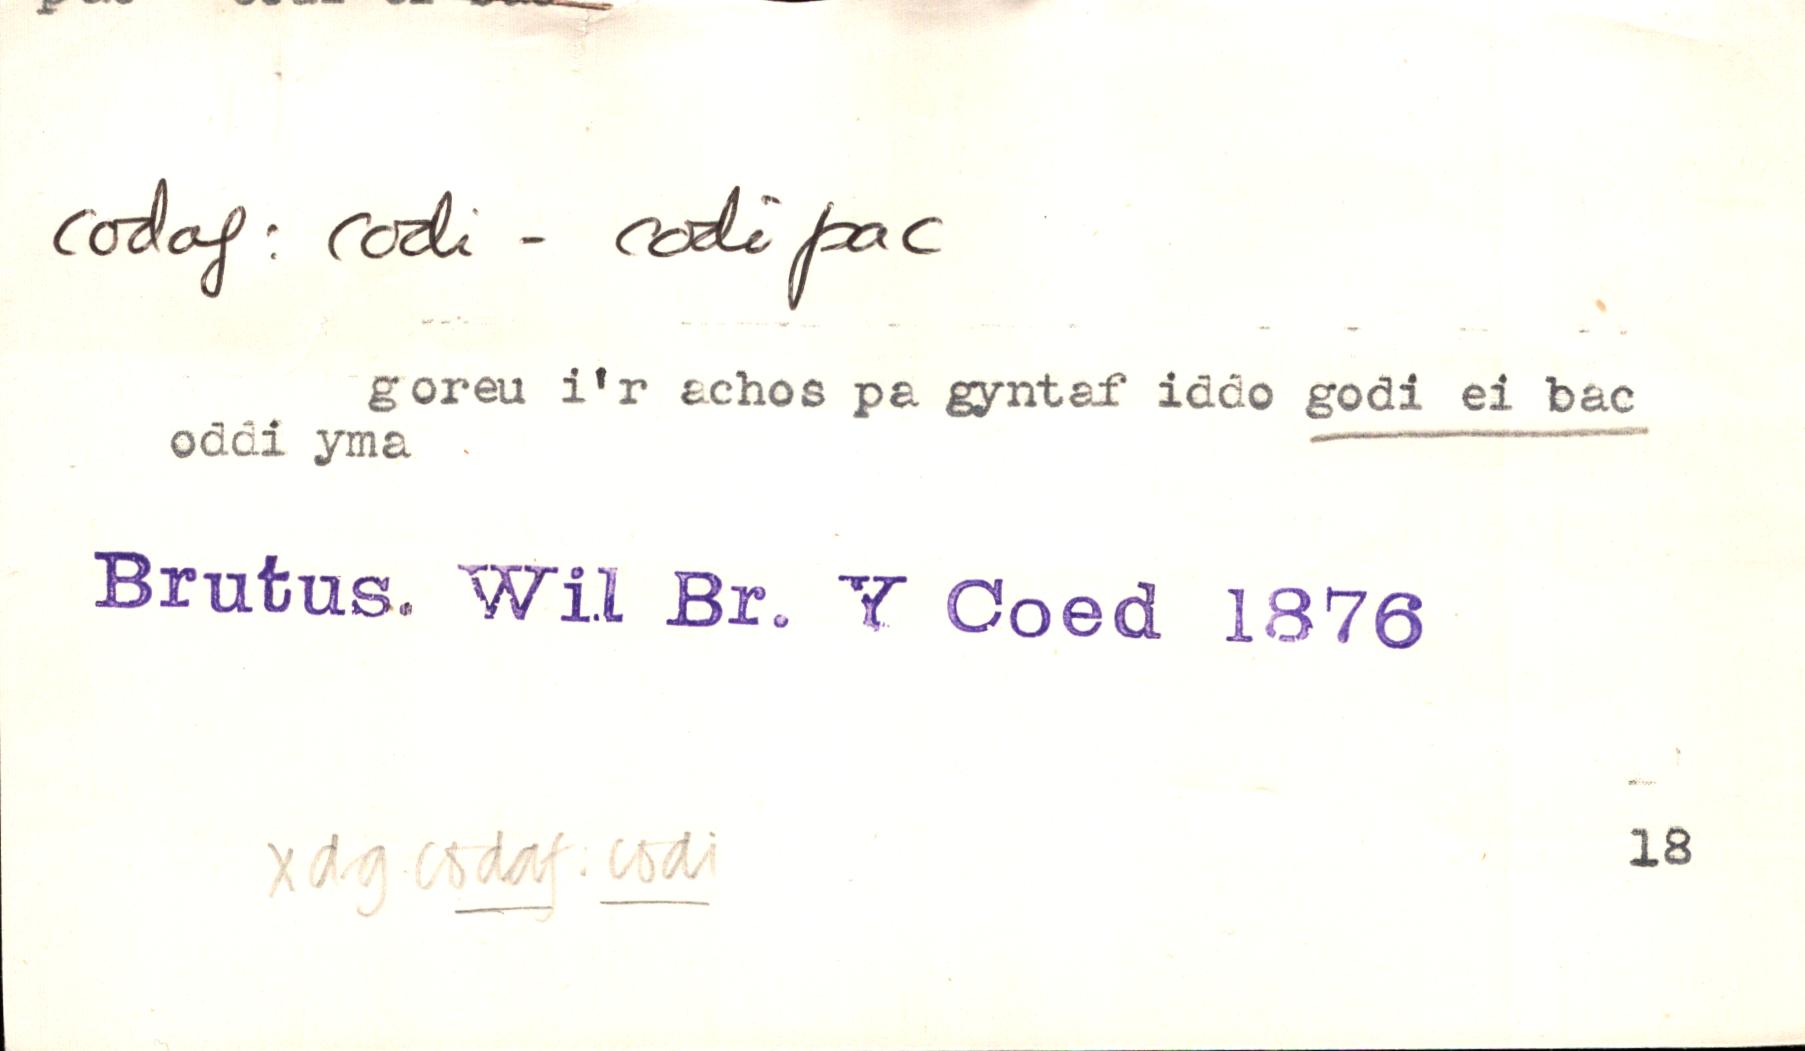 codaf: codi - codi pac
goreu i'r achos pa gyntaf iddo godi ei bac
oddi yma
Brutus. Wil Br. Y Coed 1876
18
x dg codaf: codi